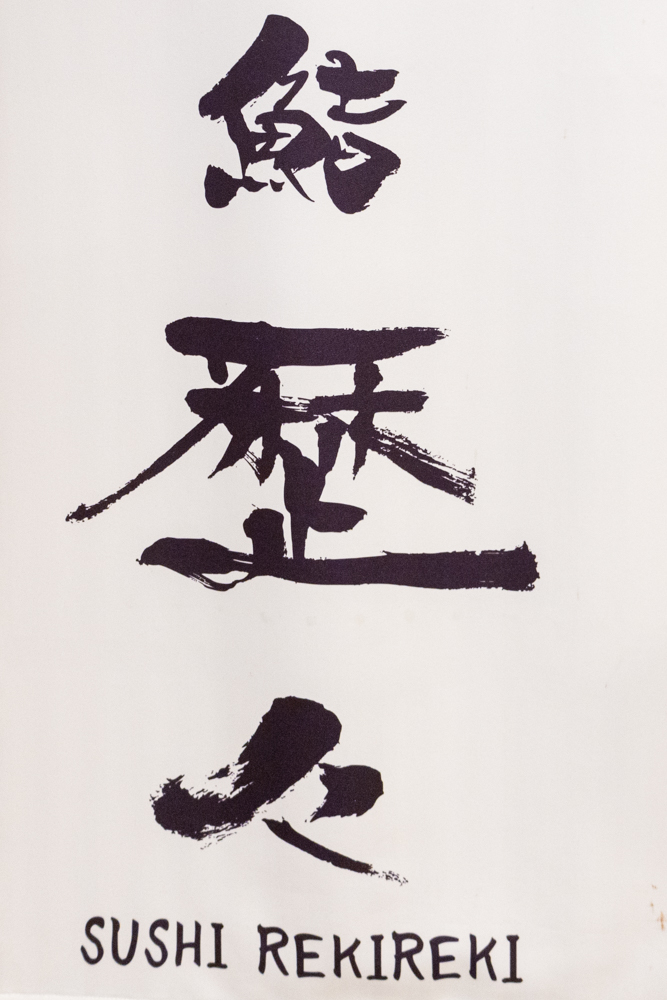 鮨
歴
々
SUSHI REKIREKI